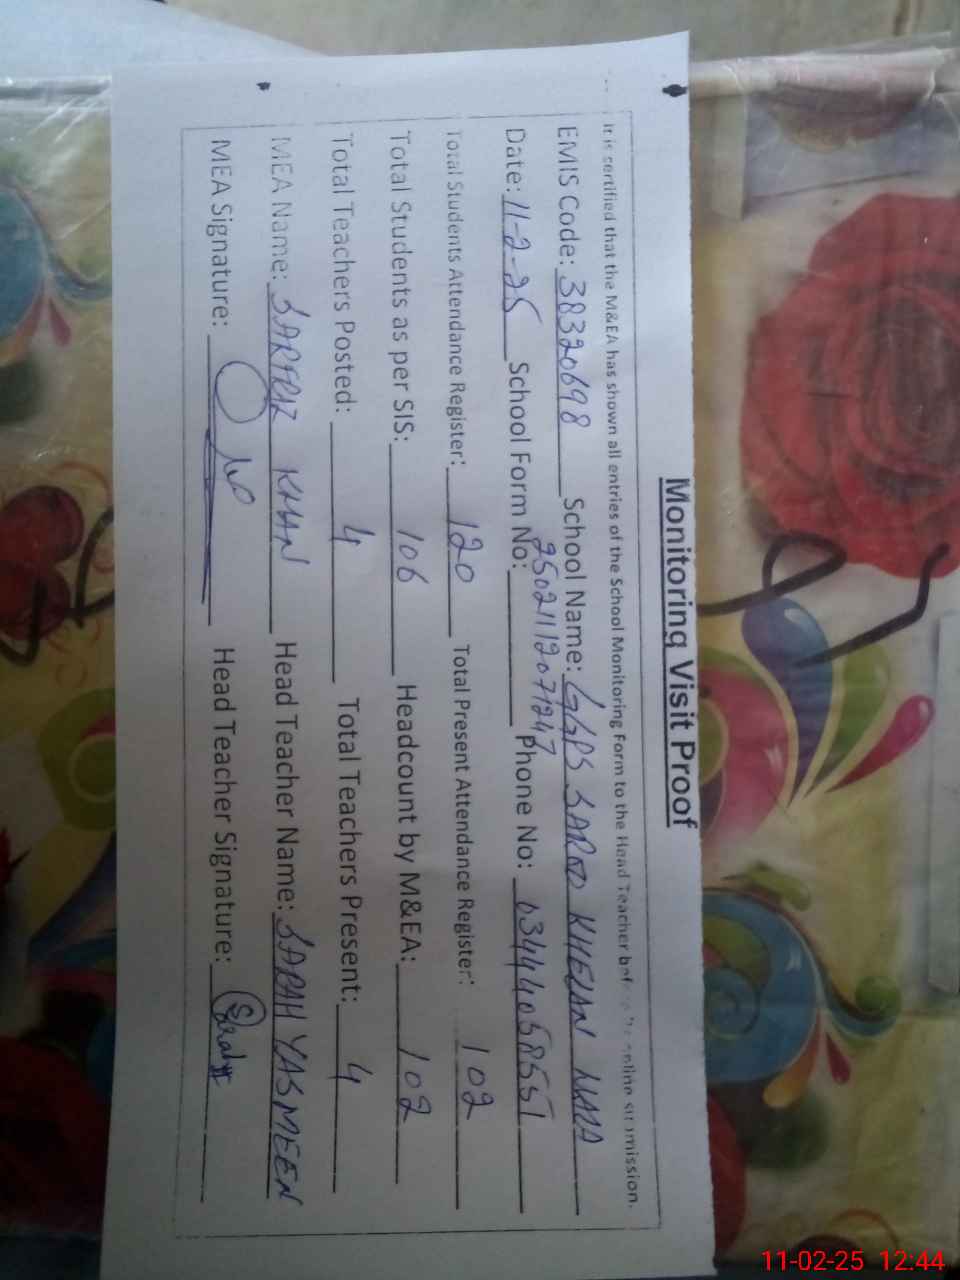 Monitoring Visit Proof
It is certified that the M&EA has shown all entries of the School Monitoring Form to the Head Teacher before the online submission.
EMIS Code: 38320698 School Name: GGPS SAROO KHELAN WALA
Date: 11-2-25 School Form No: 25021112071247 Phone No: 03444058551
Total Students Attendance Register: 120 Total Present Attendance Register: 102
Total Students as per SIS: 106 Headcount by M&EA: 102
Total Teachers Posted: 4 Total Teachers Present: 4
MEA Name: SARFRAZ KHAN Head Teacher Name: SARAH YASMEEN
MEA Signature: Head Teacher Signature:
11-02-25 12:44